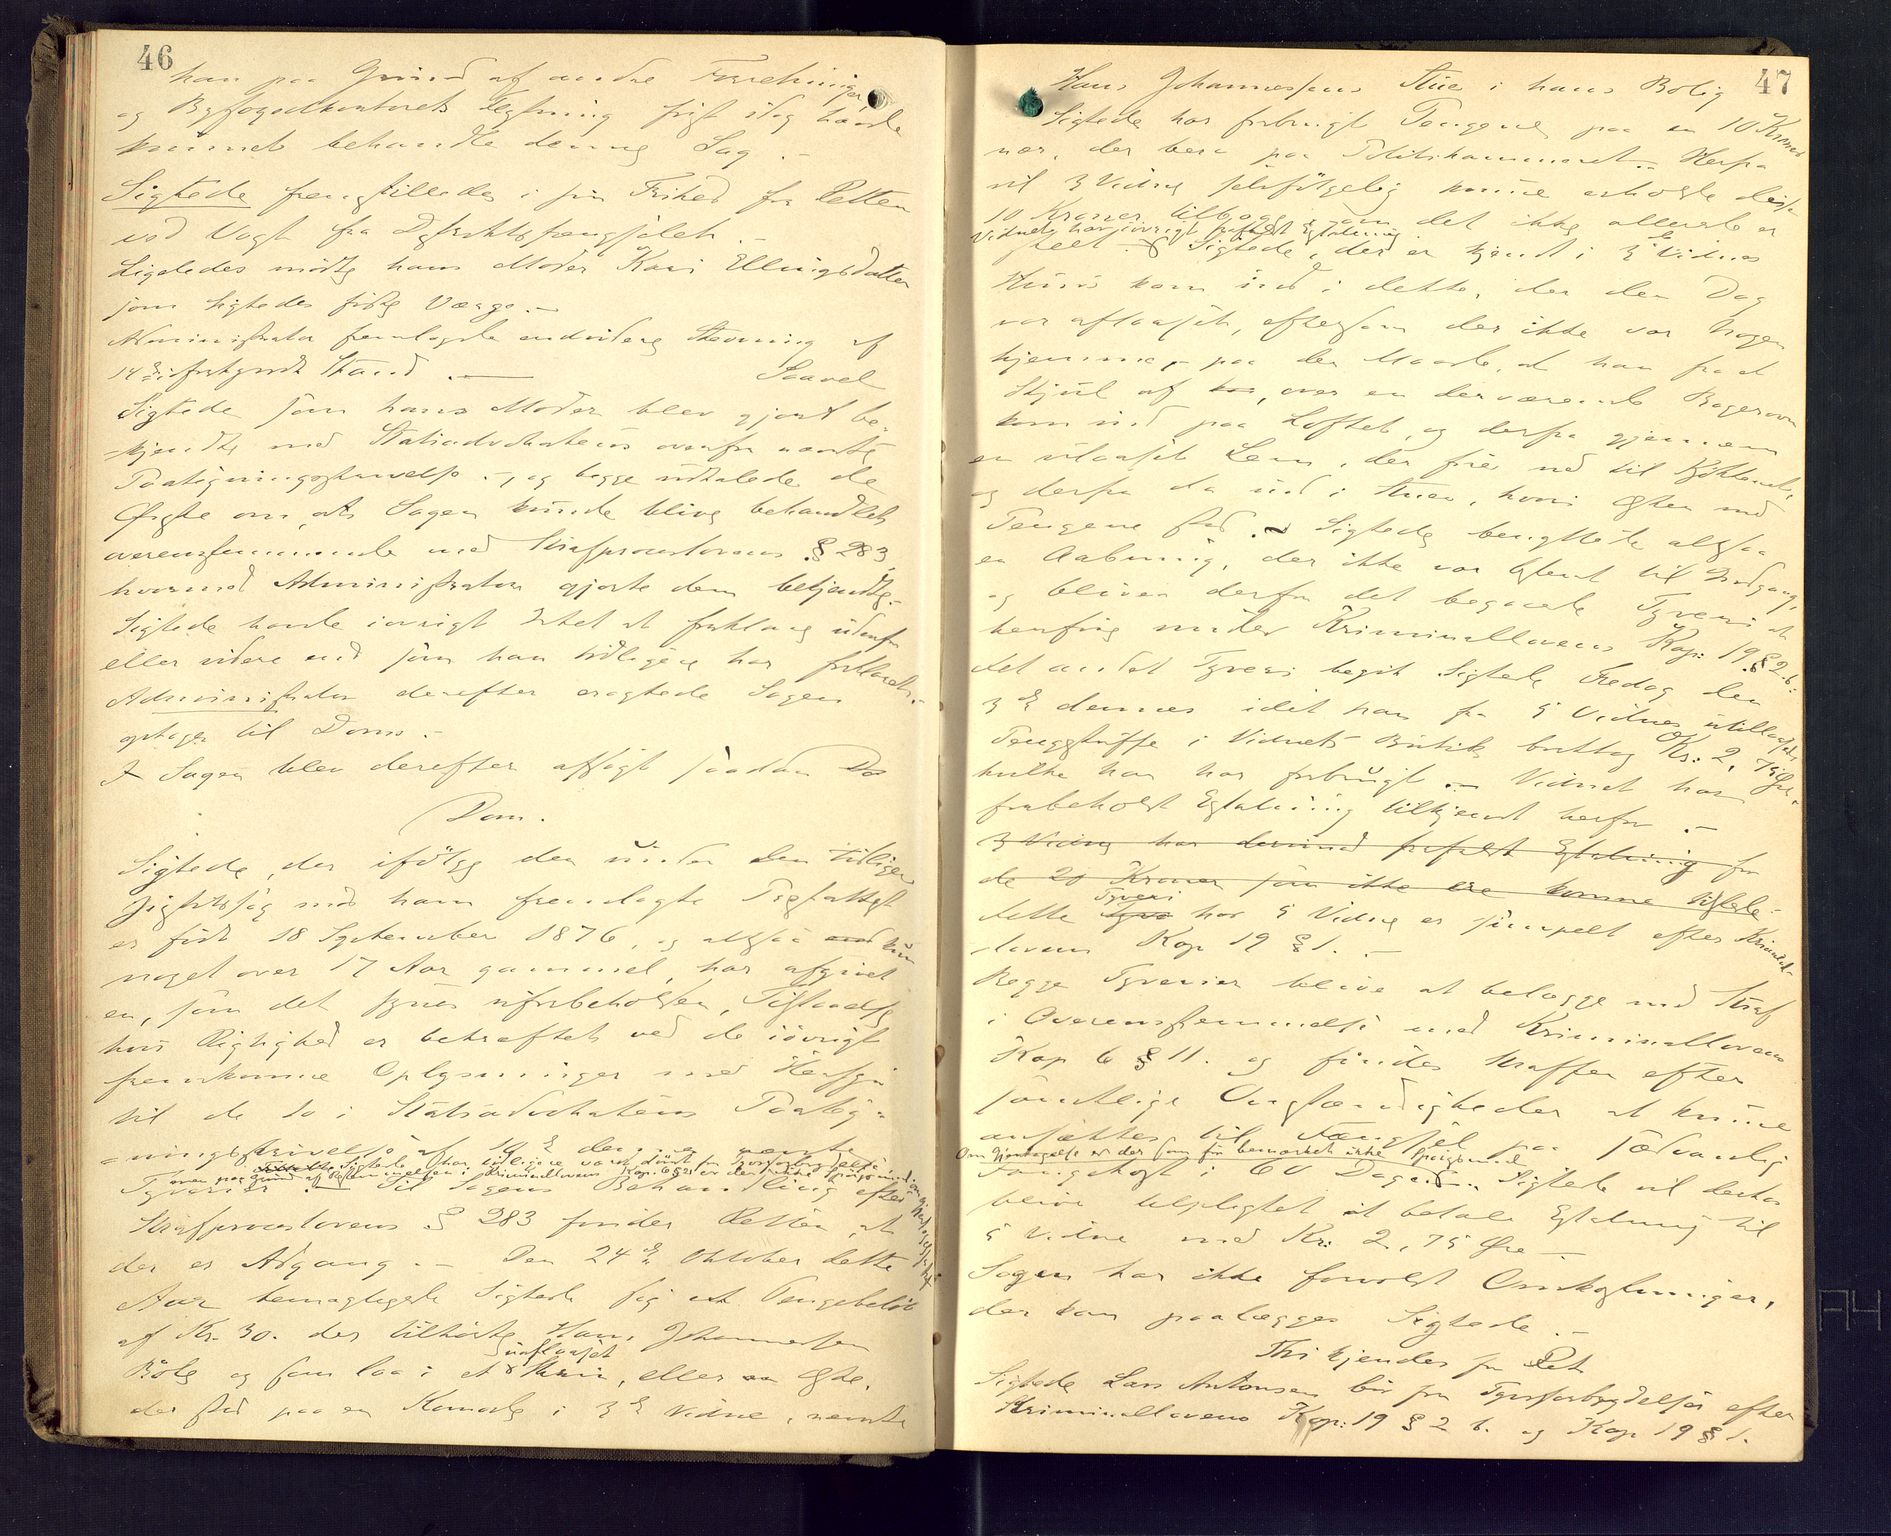 46
han paa Grund af andre Forretninger
og Byfogedkontorets Flytning først idag havde
kunnet behandle denne Sag. -
Sigtede fremstilledes i sin Frihed for Retten
ved Vogt fra Distriktsfængslet. -
Ligeledes mødte hans Moder Kari Ellingsdatter
som Sigtedes fødte Værge. -
Administrator fremlagde endvidere Stevning af
14 ds i forkyndt Stand. - Saavel
Sigtede som hans Moder blev gjort be-
-kjendte med Statsadvokatens ovenfor nævnte
Paategningsskrivelse -, og begge udtalede de
Ønske om, at Sagen kunde blive behandlet
overensstemmende med Strafproceslovens § 283,
hvormed Administrator gjorde dem bekjendte. -
Sigtede havde iøvrigt Intet at forklare udenfor
eller videre end som han tidligere har forklaret. -
Administrator derefter eragtede Sagen
optagen til Doms. -
I Sagen blev derefter afsagt saadan
Dom.
Sigtede, der ifølge den under den tidligere
Sigtelse mod ham fremlagte Døbsattest
er født 18 September 1876, og altsaa kun
noget over 17 Aar gammel, har afgivet
en, som det synes uforbeholden, Tilstaaelse
hvis Rigtighed er bekræftet ved de iøvrigt
fremkomne Oplysninger med Hensyn
til de to i Statsadvokatens Paateg-
-ningsskrivelse af 14 de ds nævnte
Sigtede har tidligere været dømt for
Tyverier. Til Sagens Behandling efter
Strafproceslovens § 283 finder Retten, at
der er Adgang. - Den 24 de Oktober dette
Aar bemægtigede Sigtede sig et Pengebeløb
af Kr. 30. der tilhørte Hans Johannessen
uaflaaset
Bøle og som laa i et Skrin, eller Æske,
der stod paa en Komode i 3 de Vidne, nævnte
47
Hans Johannessens Stue i hans Bolig
Sigtede har forbrugt Pengene paa en 10 Krones
nær, der bero paa Politikammeret. - Herfra
vil 3 Vidne selvfølgelig kunne erholde disse
10 Kroner tilbage, om det ikke allerede er
Vidnet har iøvrigt frafaldt Erstatning.
skeet. - Sigtede, der er kjendt i 3 de Vidnes
Huus kom ind i dette, der den Dag
var aflaaset, eftersom der ikke var Nogen
hjemme, - paa den Maade, at han fra et
Skjul af, over en derværende Bagerovn
kom ind paa Loftet, og derfra gjennem
en ulaaset Lem, der fører ned til Kjøkkenet,
og derfra da ind i Stuen, hvori Æsken med
Pengene stod. - Sigtede benyttede altsaa
en Aabning, der ikke var bestemt til Indgang,
og bliver derfor det begaaede Tyveri at
henføre under Kriminallovens Kap. 19 § 2 b. -
Det andet Tyveri begik Sigtede Fredag den
3 de dennes idet han fra 5 Vidnes utillaasede
Pengeskuffe i Vidnets Butik borttog Kr. 2,75 Øre,
hvilke han har forbrugt. - Vidnet har
forbeholdt Erstatning tilkjendt herfor. -
3 Vidne har derimod frafaldt Erstatning for
de 20 Kroner som ikke ere komne tilstede.
Tyveri
dette hos 5 Vidne er simpelt efter Kriminal-
-lovens Kap 19 § 1. -
Begge Tyverier blive at belægge med Straf
i Overensstemmelse med Kriminallovens
Kap 6 § 11. og findes Straffen efter
samtlige Omstændigheder at kunne
ansættes til Fængsel paa sædvanlig
Om Gjentagelse er der som før bemærket ikke Spørgsmaal
Fangekost i 60 Dage. - Sigtede vil derhos
blive tilpligtet at betale Erstatning til
5 Vidne med Kr. 2,75 Øre. -
Sagen har ikke forvoldt Omkostninger,
der kan paalægges Sigtede. -
Thi kjendes for Ret
Sigtede Lars Antonsen bør for Tyvsforbrydelser efter
Kriminallovens Kap: 19 § 2 b. og Kap 19 § 1.